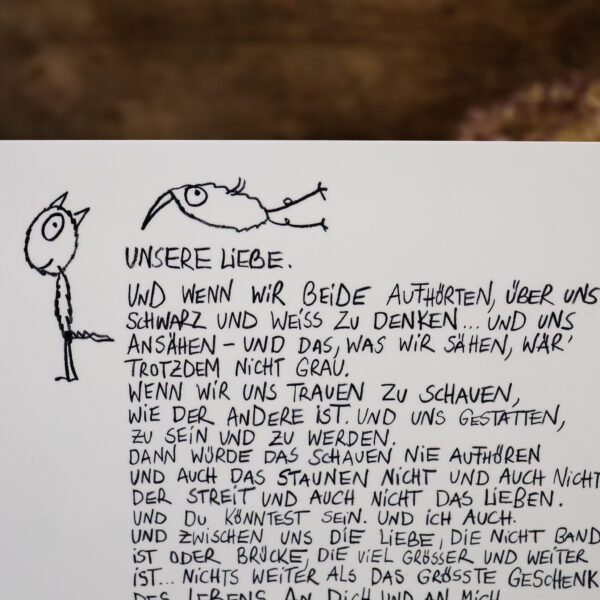 UNSERE LIEBE.
UND WENN WIR BEIDE AUFHÖRTEN, ÜBER UNS
SCHWARZ UND WEISS ZU DENKEN... UND UNS
ANSÄHEN - UND DAS, WAS WIR SÄHEN, WÄR'
TROTZDEM NICHT GRAU.
WENN WIR UNS TRAUEN ZU SCHAUEN,
WIE DER ANDERE IST. UND UNS GESTATTEN,
ZU SEIN UND ZU WERDEN.
DANN WÜRDE DAS SCHAUEN NIE AUFHÖREN
UND AUCH DAS STAUNEN NICHT UND AUCH NICHT
DER STREIT UND AUCH NICHT DAS LIEBEN.
UND DU KÖNNTEST SEIN. UND ICH AUCH.
UND ZWISCHEN UNS DIE LIEBE, DIE NICHT BAND
IST ODER BRÜCKE, DIE VIEL GRÖSSER UND WEITER
IST... NICHTS WEITER ALS DAS GRÖSSTE GESCHENK
DES LEBENS AN DICH UND AN MICH